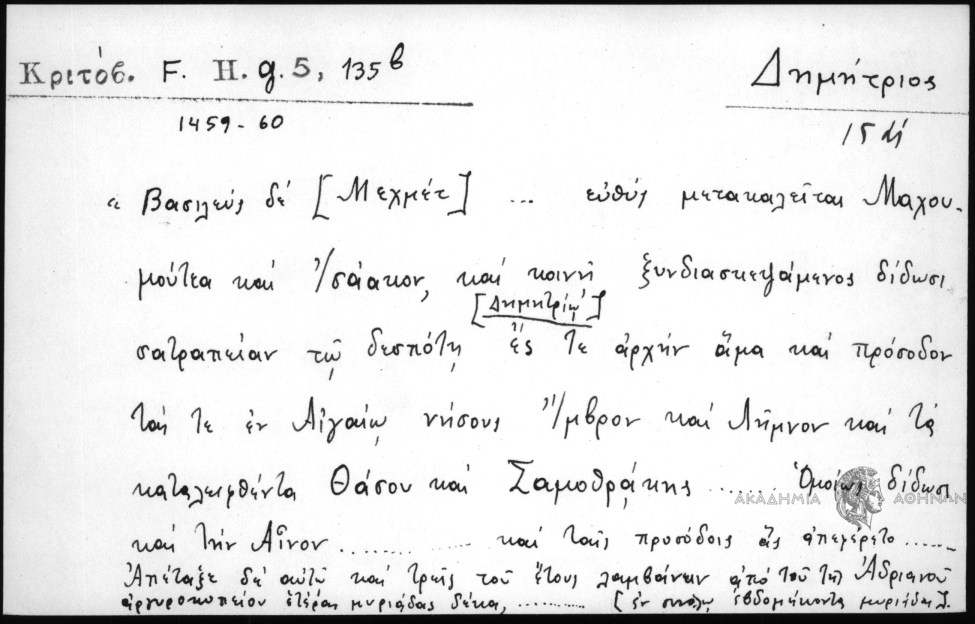 Κριτόβ. F. H. g. 5, 135b
Δημήτριος
1459-60
15
« Βασιλεύς δέ [Μεχμέτ] ... εὐθύς μετακαλεῖται Μαχου-
μούτεα καί Ἰσάακον, καί κοινῇ ξυνδιασκεψάμενος δίδωσι
[Δημητρίῳ]
σατραπείαν τῷ δεσπότῃ ἐς τε ἀρχήν ἅμα καί πρόσοδον
τάς τε ἐν Αἰγαίῳ νήσους Ἴμβρον καί Λῆμνον καί τά
καταλειφθέντα Θάσου καί Σαμοθράκης ........ Ὁμοίως δίδωσι
ΑΚΑΔΗΜΙΑ ΑΘΗΝΩΝ
καί τήν Αἶνον ........ καί ταῖς προσόδοις ἅς ἀπεφέρετο .......
Ἀπέταξε δέ αὐτῷ καί τοῦ ἔτους λαμβάνειν ἀπό τοῦ τῆς Ἀδριανοῦ
ἀργυροκοπείου ἑτέρας μυριάδας δέκα, .......... [ἐν συνόλῳ ἑβδομήκοντα μυριάδας].